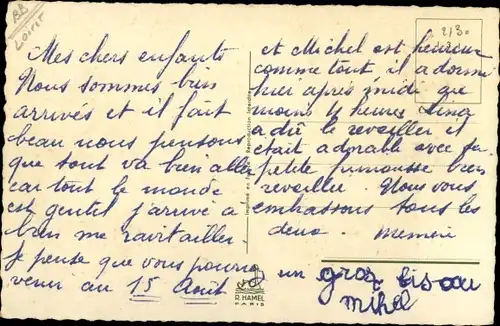 BB
Loiret
213.
Mes chers enfants
Nous sommes bien
arrivés et il fait
beau nous pensons
que tout va bien aller
car tout le monde
est gentil j'arrive à
bien me ravitailler.
Je pense que vous pourrez
venir au 15 Août
et Michel est heureux
comme tout, il a dormi
hier après midi que
moins 4 heures Lina
a dû le reveiller il
était adorable avec sa
petite frimousse bien
reveillée. Nous vous
embrassons tous les
deux. Memère
un gros bisou
Mihel
Reproduction interdite
Imprimé en
R. HAMEL
PARIS